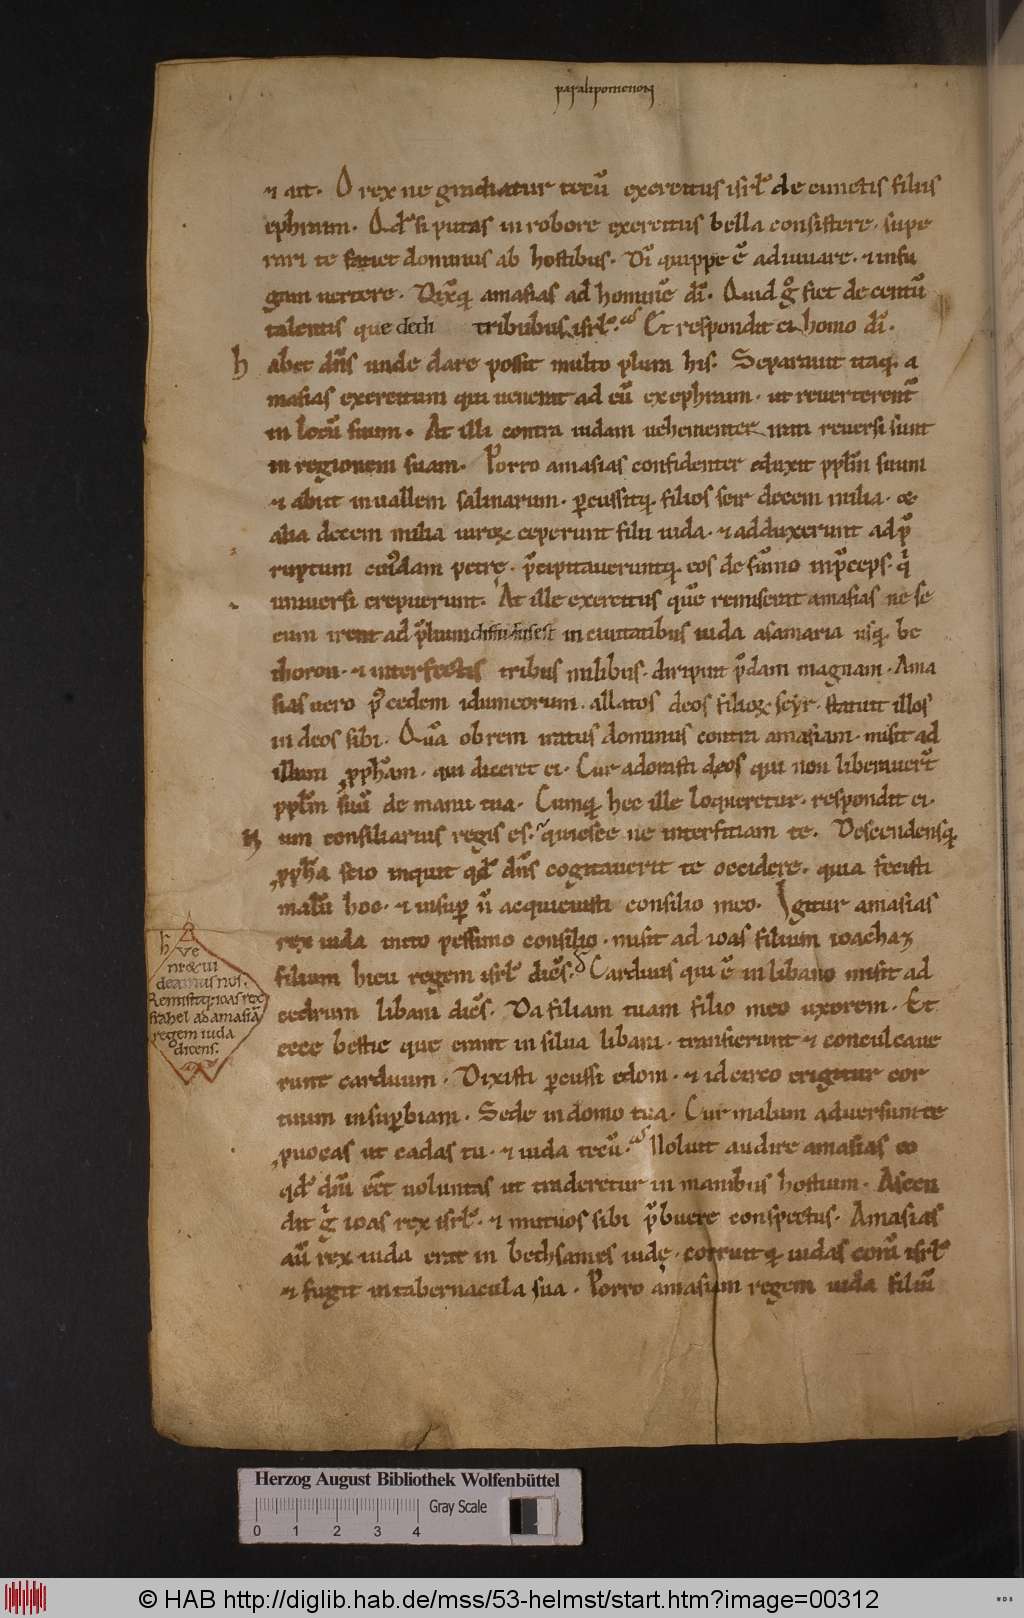 paralipomenon
⁊ ait. O rex ne gradiatur tecū exercitus isrl̄ de cunctis filiis
ephraim. Qd̄ si putas in robore exercitus bella consistere. supe
rari te faciet dominus ab hostibus. Di quippe ē adiuuare. ⁊ in fu
gam uertere. Dixq; amasias ad hominē di. Quid g̊ fiet de centū
talentis que dedi tribubus isrl̄. Et respondit ei homo di.
h abet dn̄s unde dare possit multo plura his. Separauit itaq; a
masias exercitum qui uenerat ad eū ex ephraim. ut reuerteret̄
in locū suum. At illi contra iudam uehementer irati reuersi sunt
in regionem suam. Porro amasias confidenter eduxit ppl̄m suum
⁊ abiit in uallem salinarum. percussitq; filios seir decem milia. ⁊
alia decem milia uiroꝝ ceperunt filii iuda. ⁊ adduxerunt ad p̄
ruptum cuiꝰdam petrę. p̄cipitaueruntq; eos de sūmo in p̄ceps. q̇
uniuersi crepuerunt. At ille exercitus quē remiserat amasias ne se
cum iret ad p̄lium diffusus est in ciuitatibus iuda a samaria usq; be
thoron. ⁊ interfectis tribus milibus. diripuit p̄dam magnam. Ama
sias uero pꝰ cedem idumeorum. allatos deos filioꝝ seyr. statuit illos
in deos sibi. Quā ob rem iratus dominus contra amasiam. misit ad
illum ꝓpham. qui diceret ei. Cur adorasti deos qui non liberauer̄t
ppl̄m suū de manu tua. Cumq; hec ille loqueretur. respondit ei.
N um consiliarius regis es. quiesce ne interficiam te. Descendensq;
ꝓpha scio inquit qd̄ dn̄s cogitauerit te occidere. quia fecisti
malū hoc. ⁊ insup n̄ acquieuisti consilio meo. Igitur amasias
rex iuda inito pessimo consilio. misit ad ioas filium ioachaz
filium hieu regem isrl̄ dicēs. Carduus qui ē in libano misit ad
cedrum libani dicēs. Da filiam tuam filio meo uxorem. Et
ecce bestie que erant in silua libani. transierunt ⁊ conculcaue
runt carduum. Dixisti percussi edom. ⁊ idcirco erigitur cor
tuum in supbiam. Sede in domo tua. Cur malum aduersum te
ꝓuocas ut cadas tu. ⁊ iuda tecū. Noluit audire amasias eo
qd̄ dn̄i eēt uoluntas ut traderetur in manibus hostium. Ascen
dit g̊ ioas rex isrl̄. ⁊ mutuos sibi p̄buere conspectus. Amasias
aū rex iuda erat in bethsames iudę. corruitq; iudas corā isrl̄
⁊ fugit in tabernacula sua. Porro amasiam regem iuda filiū
h Ve
ni ⁊ ui
deamus nos.
Remisitq; ioas rex
israhel ad amasiā
regem iuda
dicens.
Herzog August Bibliothek Wolfenbüttel
Gray Scale
0 1 2 3 4
© HAB http://diglib.hab.de/mss/53-helmst/start.htm?image=00312